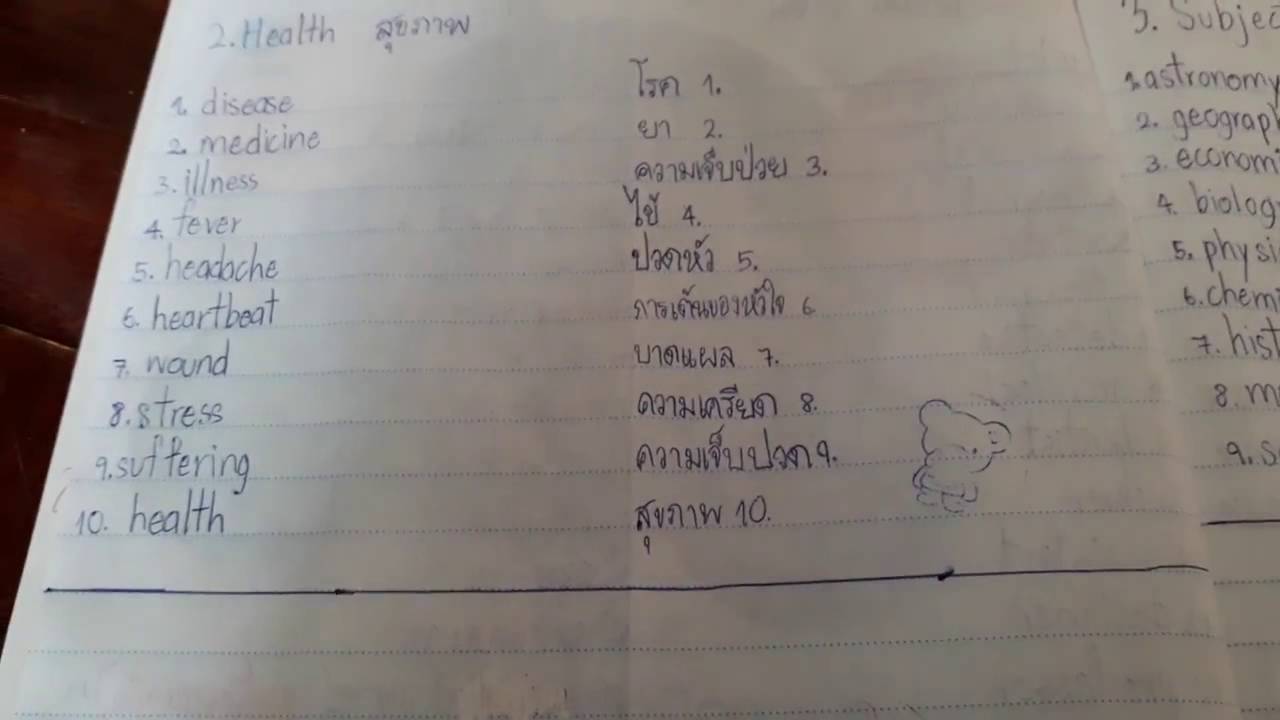 2. Health สุขภาพ
1. disease โรค 1.
2. medicine ยา 2.
3. illness ความเจ็บป่วย 3.
4. fever ไข้ 4.
5. headache ปวดหัว 5.
6. heartbeat การเต้นของหัวใจ 6
7. wound บาดแผล 7.
8. stress ความเครียด 8.
9. suffering ความเจ็บปวด 9.
10. health สุขภาพ 10.
3. Subjec
1. astronomy
2. geograph
3. economi
4. biolog
5. physi
6. chemi
7. hist
8. m
9. s